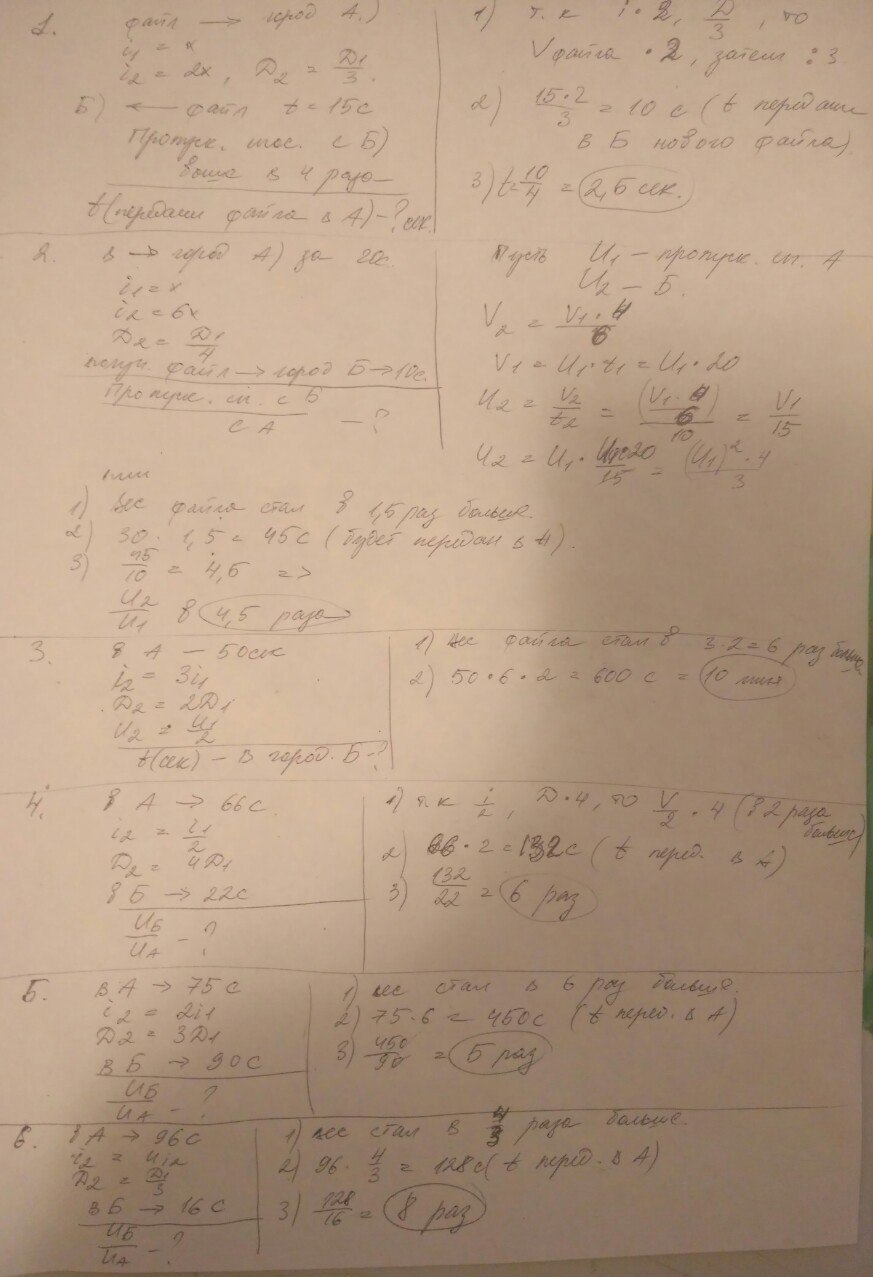 1. файл → город А.)
i1 = x
i2 = 2x, D2 = D1/3.
Б) ← файл t = 15с
Пропуск. спос. с Б)
выше в 4 раза
t(передачи файла в А) - ? сек.
1) т.к i·2, D/3, то
V файла · 2, затем : 3
2) 15·2/3 = 10 с (t передачи
в Б нового файла)
3) t = 10/4 = 2,5 сек.
2. в → город А) за 20с.
i1 = x
i2 = 6x
D2 = D1/4
файл → город Б → 10с.
Пропуск. сп. с Б
с А - ?
Пусть U1 - пропуск. сп. А
U2 - Б.
V2 = V1·4/6
V1 = U1·t1 = U1·20
U2 = V2/t2 = (V1·4/6)/10 = V1/15
U2 = U1·20/15 = (U1)²·4/3
или
1) вес файла стал в 1,5 раз больше.
2) 30 · 1,5 = 45с (будет передан в А).
3) 45/10 = 4,5 =>
U2/U1 в 4,5 раза
3. в А - 50сек
i2 = 3i1
D2 = 2D1
U2 = U1/2
t(сек) - в город. Б - ?
1) вес файла стал в 3·2=6 раз больше.
2) 50·6·2 = 600 с = 10 мин
4. в А → 66с
i2 = i1/2
D2 = 4D1
в Б → 22с
UБ/UА - ?
1) т.к i/2, D·4, то V/2 · 4 (в 2 раза
больше)
2) 66·2 = 132с (t перед. в А)
3) 132/22 = 6 раз
5. в А → 75 с
i2 = 2i1
D2 = 3D1
в Б → 90с
UБ/UА - ?
1) вес стал в 6 раз больше.
2) 75·6 = 450с (t перед. в А)
3) 450/90 = 5 раз
6. в А → 96с
i2 = 4i2
D2 = D1/3
в Б → 16 с
UБ/UА - ?
1) вес стал в 4/3 раза больше.
2) 96 · 4/3 = 128с( t перед. в А)
3) 128/16 = 8 раз